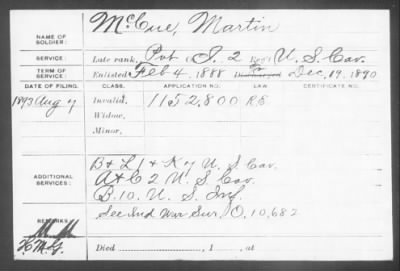 NAME OF SOLDIER: McCue, Martin
SERVICE: Late rank, Pvt Co. I. 2 Reg't U. S. Cav.
TERM OF SERVICE: Enlisted Feb 4, 1888 Discharged Dec. 19, 1890
DATE OF FILING. CLASS. APPLICATION NO. LAW. CERTIFICATE NO.
1893 Aug 7 Invalid, 1152,800
Widow,
Minor,
ADDITIONAL SERVICES:
B & L 1 & K 7 U. S. Cav.
A & C 2 U. S. Cav.
B. 10. U. S. Inf.
See Ind War Sur. O. 10,682
REMARKS:
Died , 1 , at